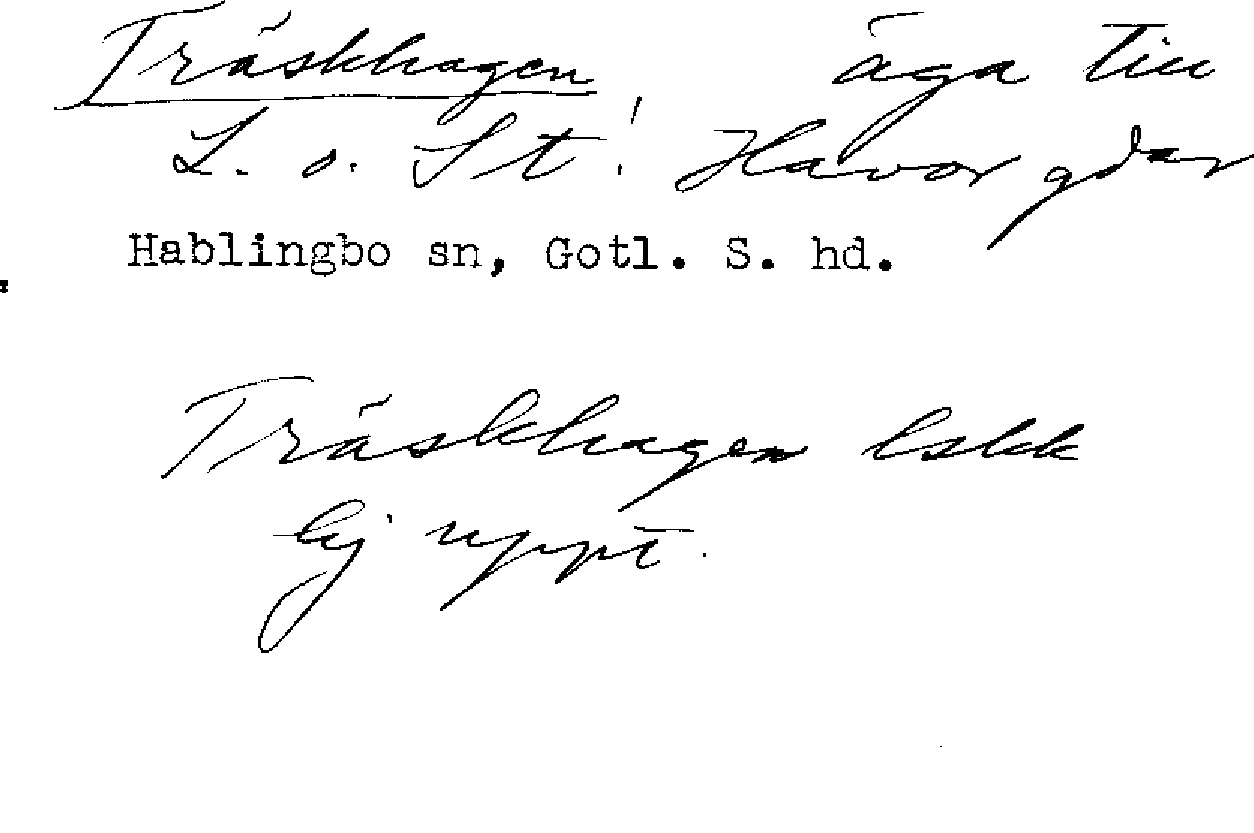 Träskhagen äga till
L. o. St. Havor gdar
Hablingbo sn, Gotl. S. hd.
Träskhagen lskk
Ej uppt.